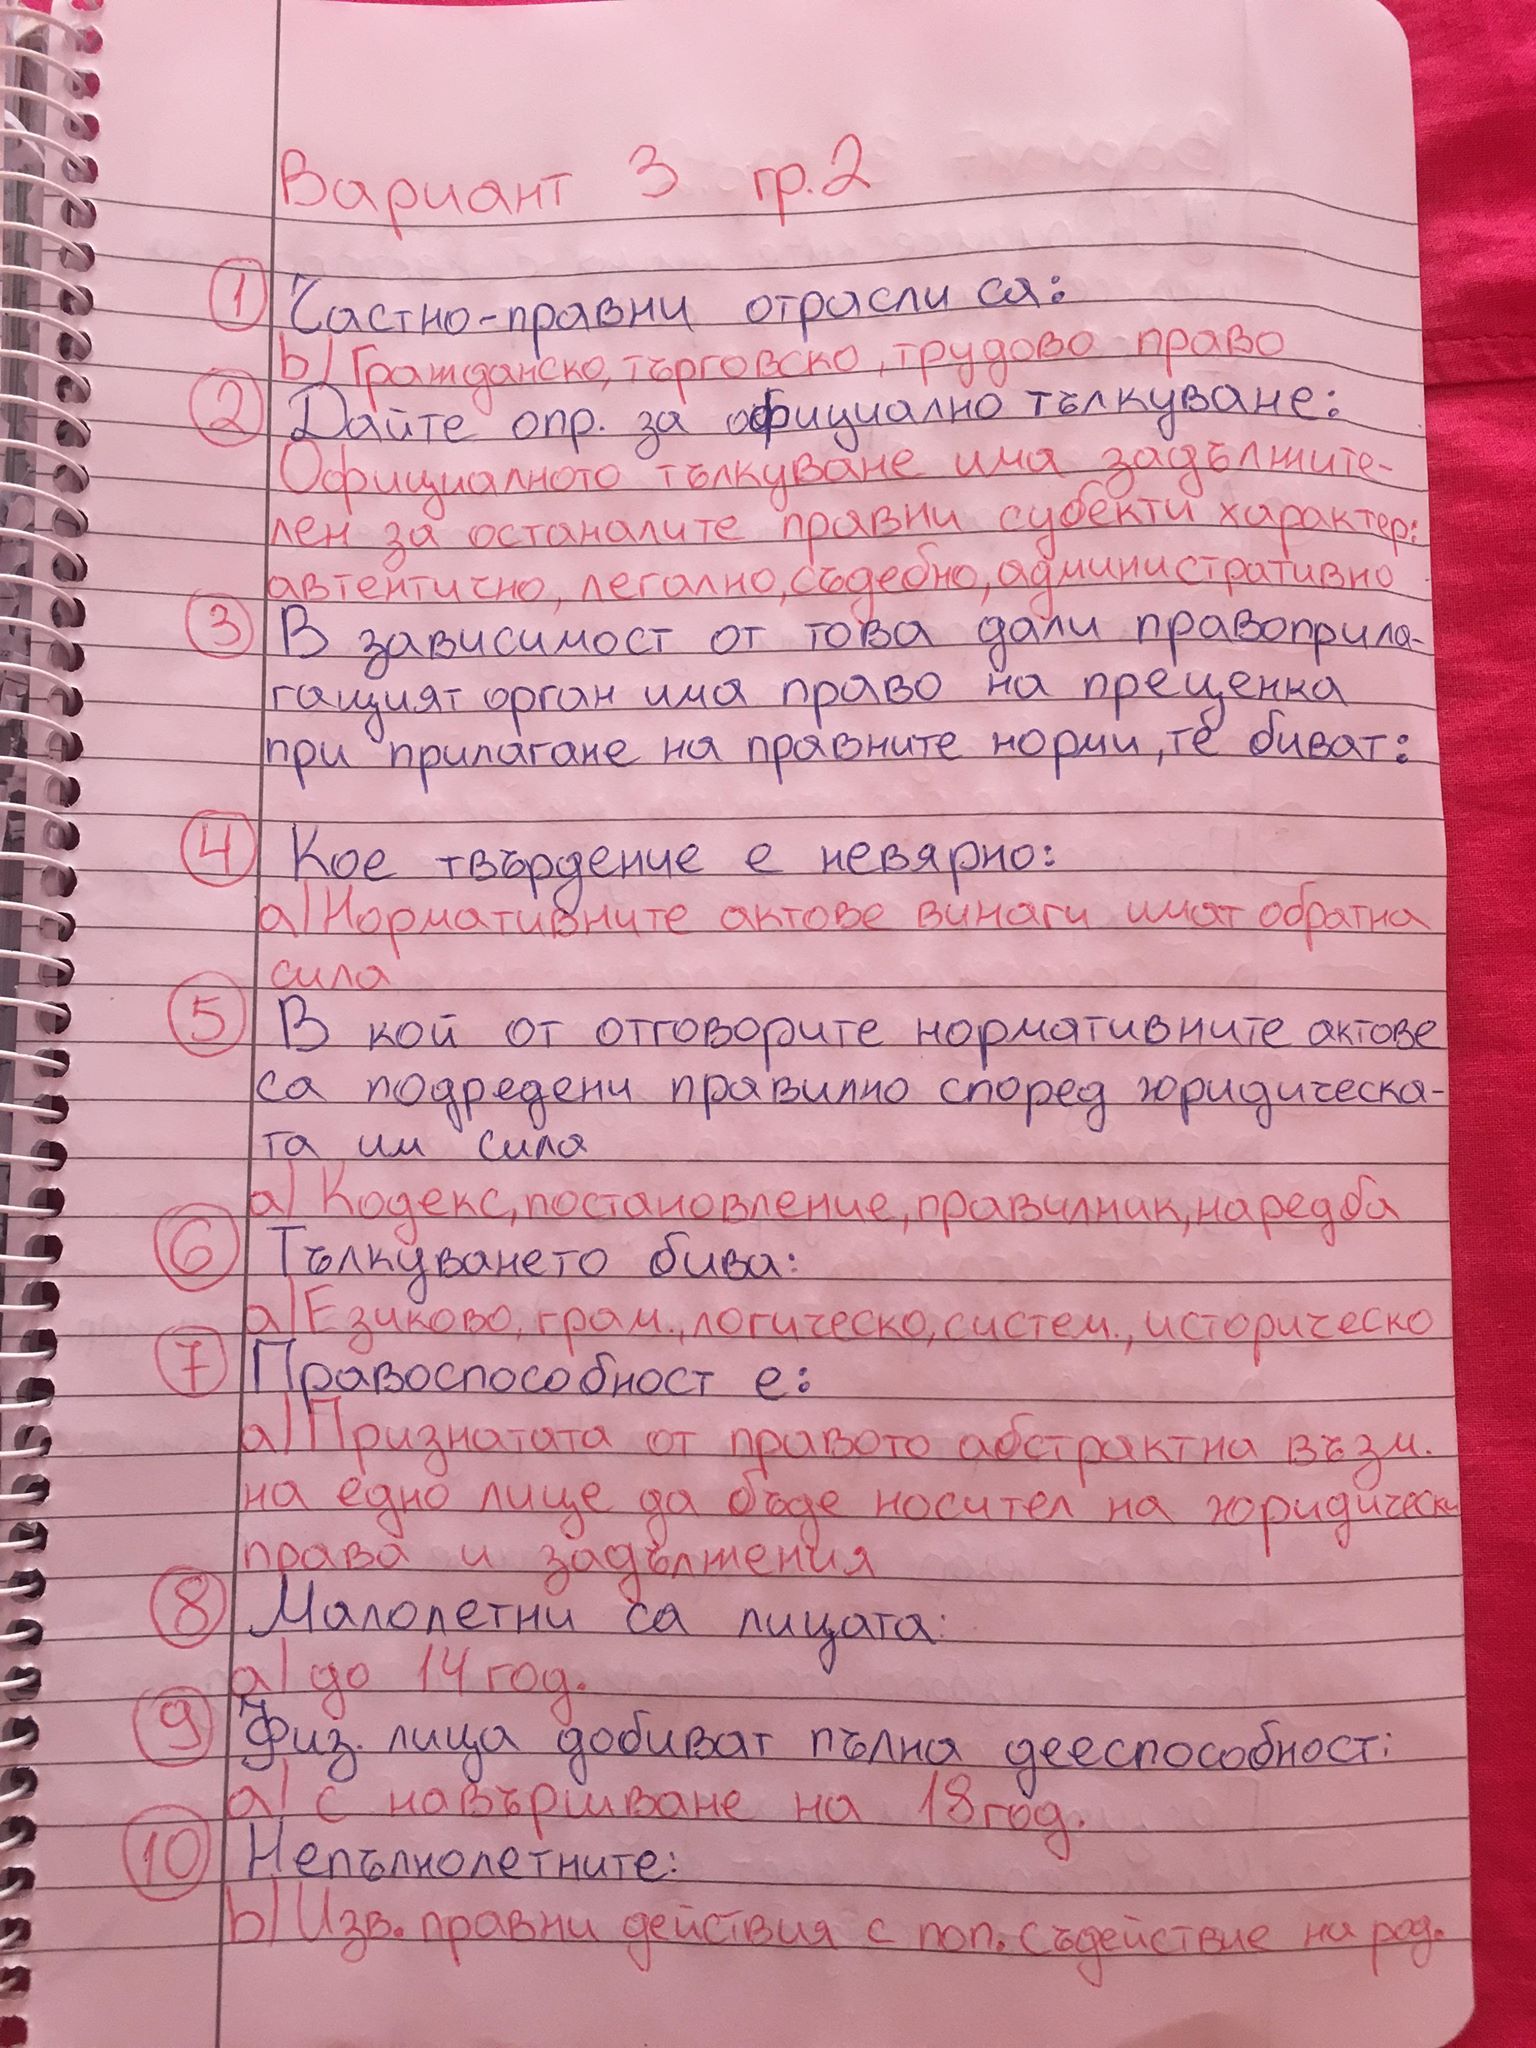 Вариант 3 гр.2
1 Частно-правни отрасли са:
b) Гражданско, търговско, трудово право
2 Дайте опр. за официално тълкуване:
Официалното тълкуване има задължите-
лен за останалите правни субекти характер:
автентично, легално, съдебно, административно
3 В зависимост от това дали правоприла-
гащият орган има право на преценка
при прилагане на правните норми, те биват:
4 Кое твърдение е невярно:
а) Нормативните актове винаги имат обратна
сила
5 В кой от отговорите нормативните актове
са подредени правилно според юридическа-
та им сила
а) Кодекс, постановление, правилник, наредба
6 Тълкуването бива:
а) Езиково, грам., логическо, систем., историческо
7 Правоспособност е:
а) Признатата от правото абстрактна възм.
на едно лице да бъде носител на юридически
права и задължения
8 Малолетни са лицата:
а) до 14 год.
9 Физ. лица добиват пълна дееспособност:
а) с навършване на 18 год.
10 Непълнолетните:
b) Изв. правни действия с поп. съдействие на род.